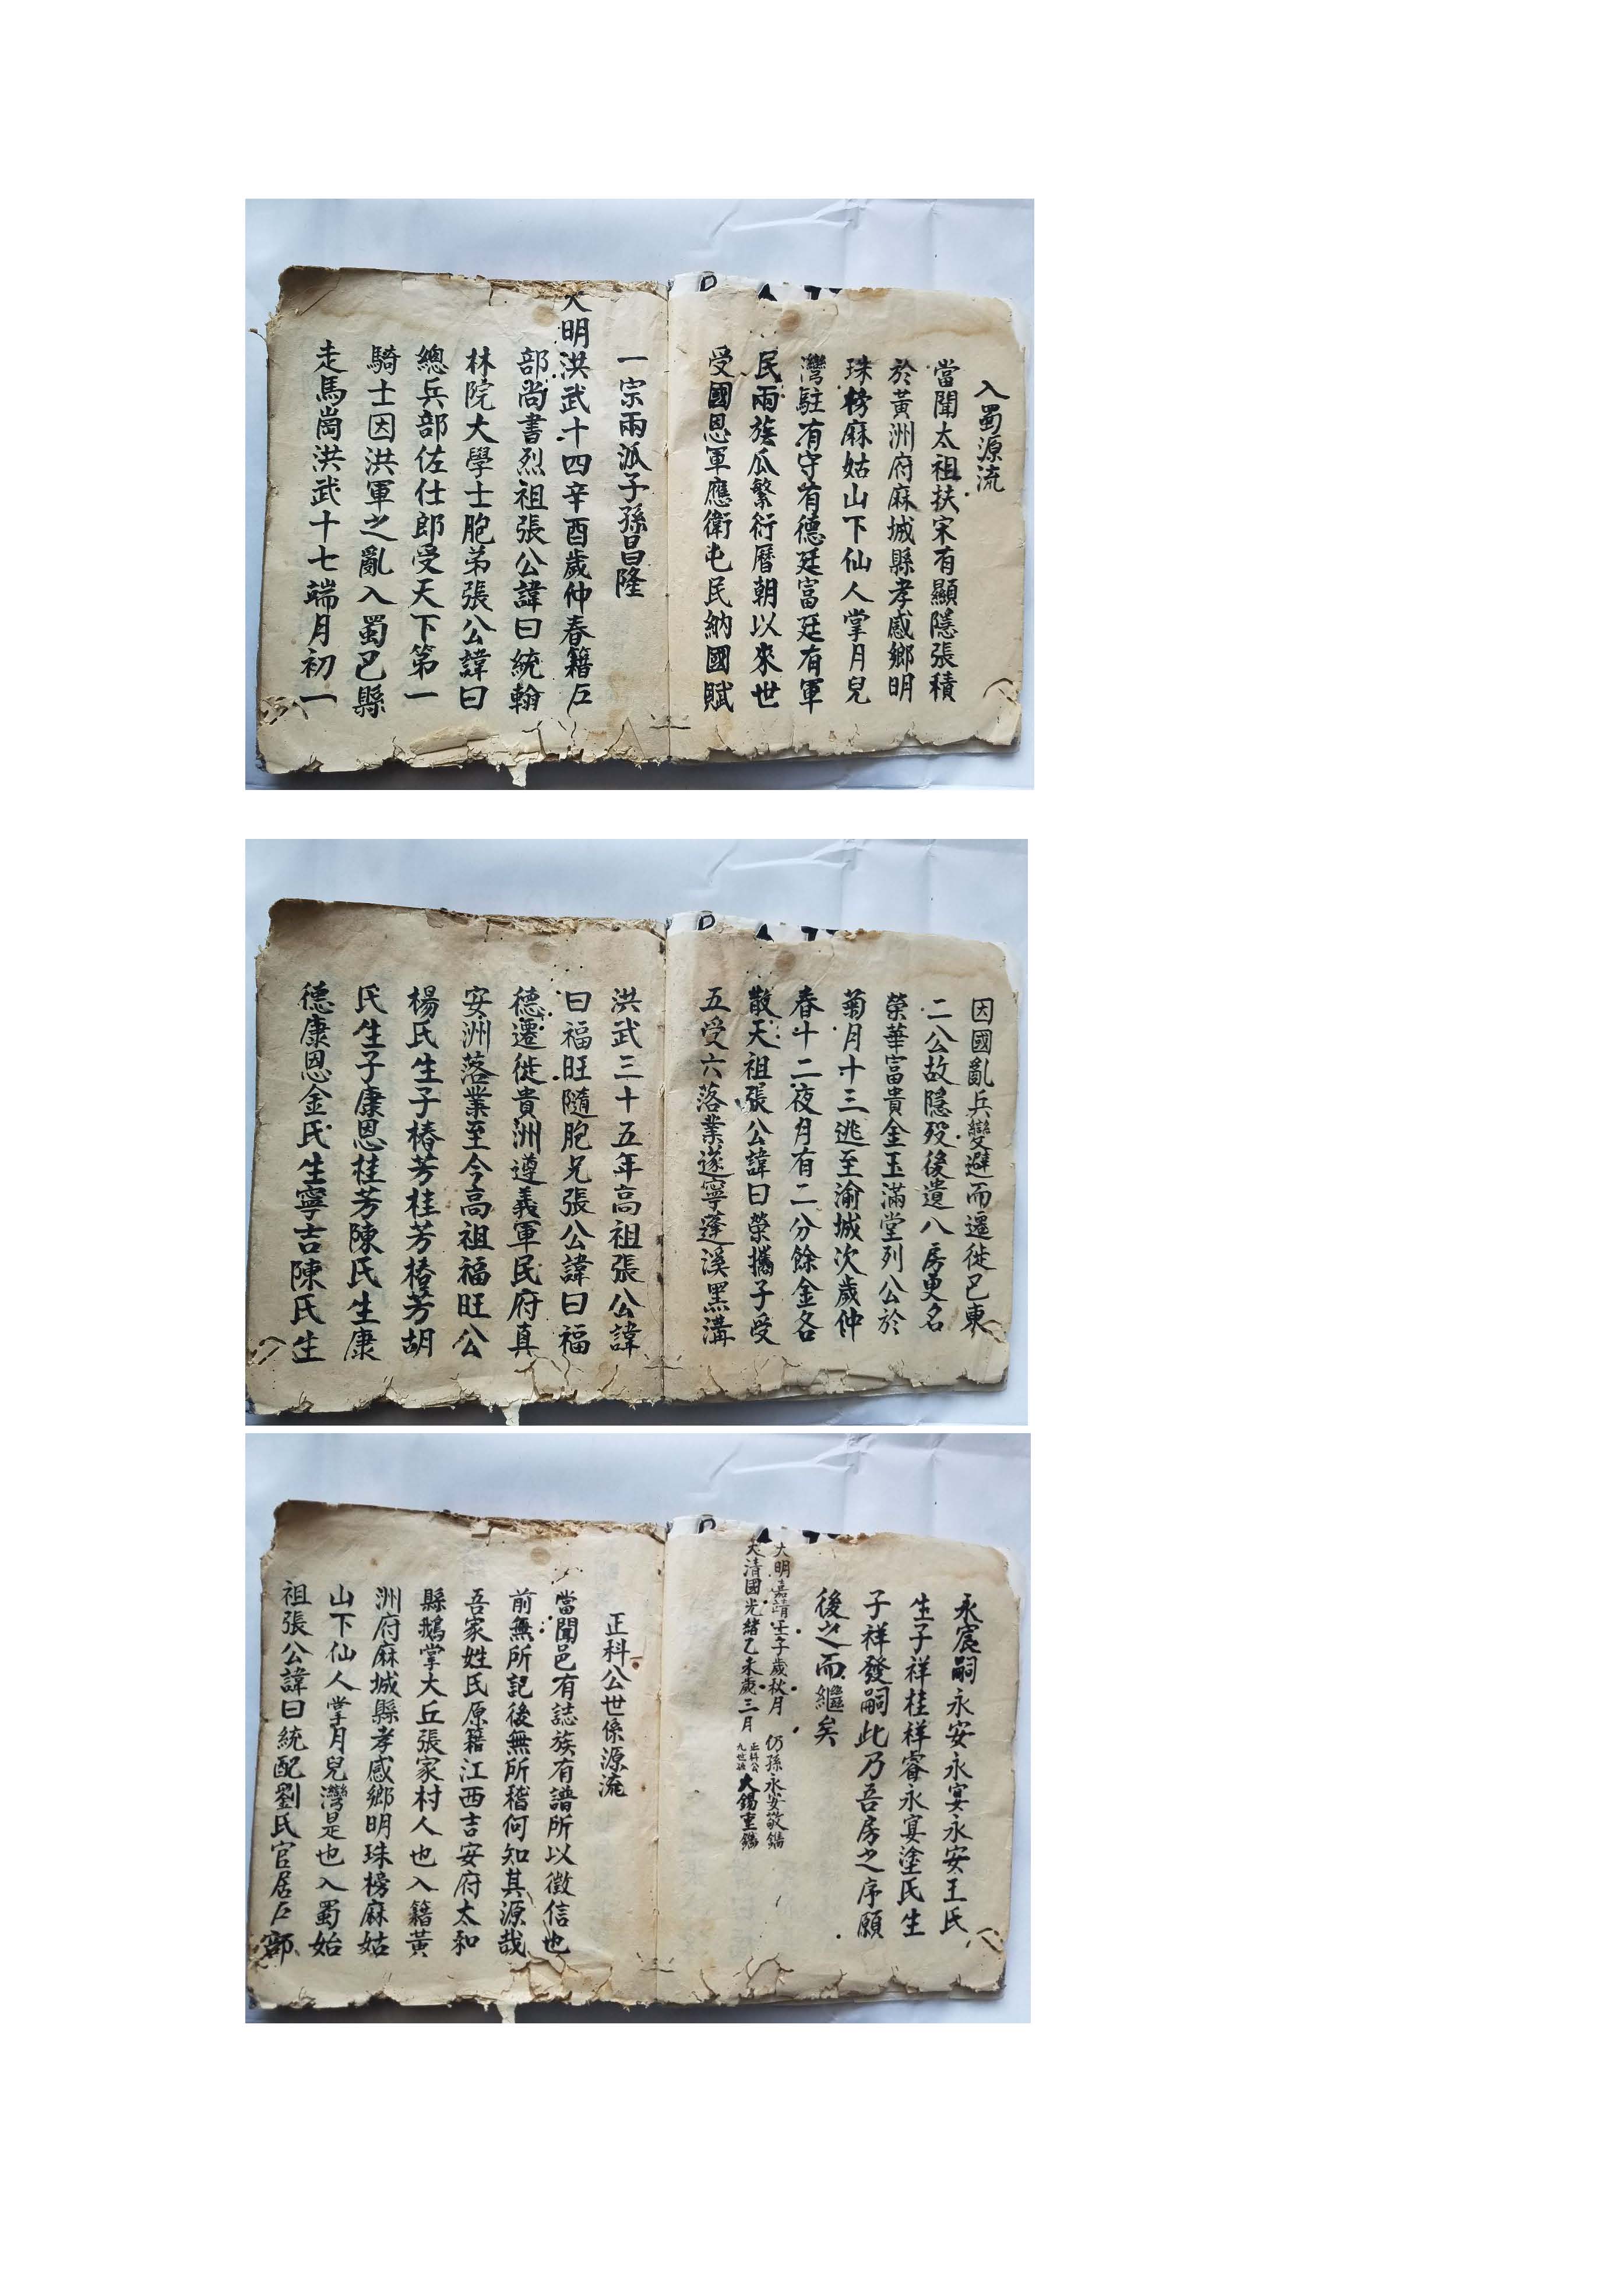 入蜀源流
當聞太祖扶宋有顯隱張積
於黃洲府麻城縣孝感鄉明
珠榜麻姑山下仙人掌月兒
灣駐有守有德廷富廷有軍
民兩族瓜繁衍曆朝以來世
受國恩軍應衛屯民納國賦
一宗兩派子孫昌隆
大明洪武十四辛酉歲仲春籍戶
部尚書烈祖張公諱曰統翰
林院大學士胞弟張公諱曰
總兵部佐仕郎受天下第一
騎士因洪軍之亂入蜀巴縣
走馬崗洪武十七端月初一
因國亂兵變避而遷徙巴東
二公故隱歿後遺八房更名
榮華富貴金玉滿堂列公於
菊月十三逃至渝城次歲仲
春十二夜月有二分餘金各
散天祖張公諱曰榮攜子受
五受六落業遂寧蓬溪黑溝
洪武三十五年高祖張公諱
曰福旺隨胞兄張公諱曰福
德遷徙貴洲遵義軍民府真
安洲落業至今高祖福旺公
楊氏生子椿芳桂芳椿芳胡
氏生子康恩桂芳陳氏生康
德康恩金氏生寧吉陳氏生
永宸嗣永安永宴永安王氏
生子祥桂祥睿永宴塗氏生
子祥發嗣此乃吾房之序願
後之而繼矣
大明嘉靖壬子歲秋月 仍孫永安敬鐫
大清國光緒乙未歲三月 正科公九世孫大錫重鐫
正科公世係源流
當聞邑有誌族有譜所以徵信也
前無所記後無所稽何知其源哉
吾家姓氏原籍江西吉安府太和
縣鵝掌大丘張家村人也入籍黃
洲府麻城縣孝感鄉明珠榜麻姑
山下仙人掌月兒灣是也入蜀始
祖張公諱曰統配劉氏官居戶部